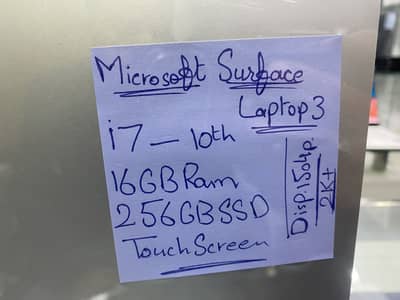 Microsoft Surface
Laptop 3
i7 - 10th
16GB Ram
256GB SSD
Touch Screen
Disp. 1504p.
2K+